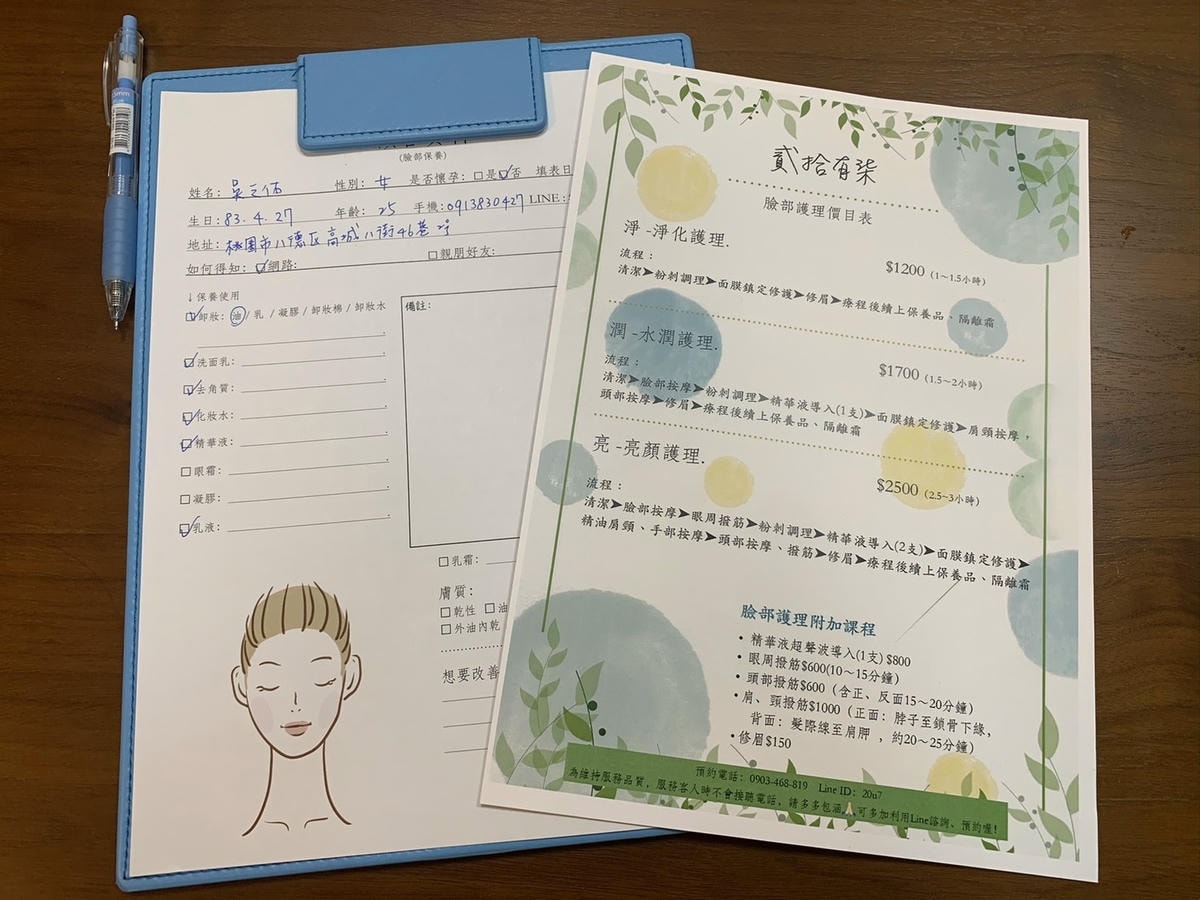 (臉部保養)
姓名: 吳 性別: 女 是否懷孕: □是☑否 填表日
生日: 83.4.27 年齡: 25 手機: 0913830427 LINE:
地址: 桃園市八德區高城八街46巷
如何得知: ☑網路: □親朋好友:
↓保養使用
☑卸妝: 油 / 乳 / 凝膠 / 卸妝棉 / 卸妝水
☑洗面乳:
☑去角質:
☑化妝水:
☑精華液:
□眼霜:
□凝膠:
☑乳液:
備註:
□乳霜:
膚質:
□乾性 □油
□外油內乾
想要改善
貳拾有柒
臉部護理價目表
淨 -淨化護理.
$1200 (1~1.5小時)
流程:
清潔➤粉刺調理➤面膜鎮定修護➤修眉➤療程後續上保養品、隔離霜
潤 -水潤護理.
$1700 (1.5~2小時)
流程:
清潔➤臉部按摩➤粉刺調理➤精華液導入(1支)➤面膜鎮定修護➤肩頸按摩,
頭部按摩➤修眉➤療程後續上保養品、隔離霜
亮 -亮顏護理.
$2500 (2.5~3小時)
流程:
清潔➤臉部按摩➤眼周撥筋➤粉刺調理➤精華液導入(2支)➤面膜鎮定修護➤
精油肩頸、手部按摩➤頭部按摩、撥筋➤修眉➤療程後續上保養品、隔離霜
臉部護理附加課程
• 精華液超聲波導入(1支) $800
• 眼周撥筋$600(10~15分鐘)
• 頭部撥筋$600 (含正、反面15~20分鐘)
• 肩、頸撥筋$1000 (正面: 脖子至鎖骨下緣,
背面: 髮際線至肩胛 , 約20~25分鐘)
• 修眉$150
預約電話: 0903-468-819 Line ID: 20u7
為維持服務品質, 服務客人時不會接聽電話, 請多多包涵🙏可多加利用Line諮詢、預約喔!